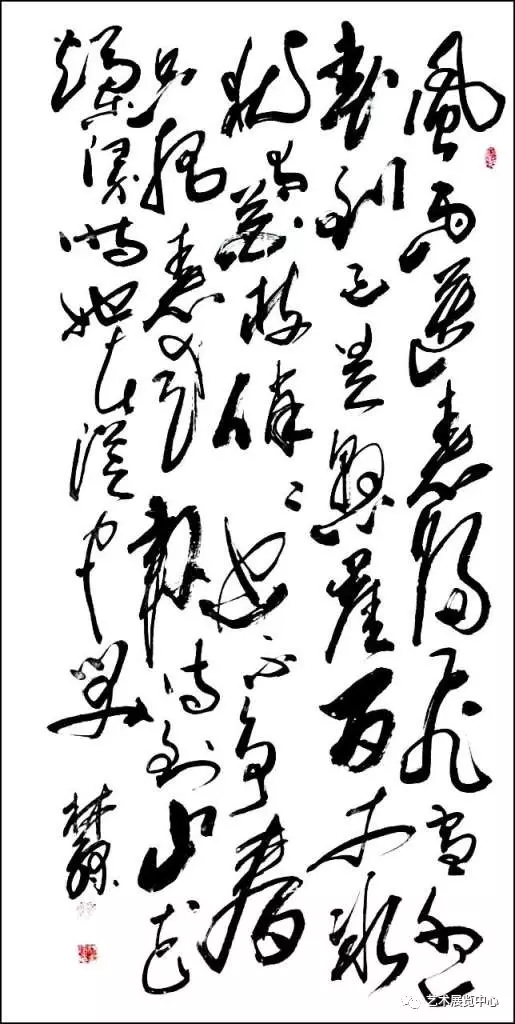 風雨送春歸飛雪迎
春到已是懸崖百丈冰
犹有花枝俏〻也不争春
只把春来報待到山花
爛漫時她在丛中笑
林
艺术展览中心